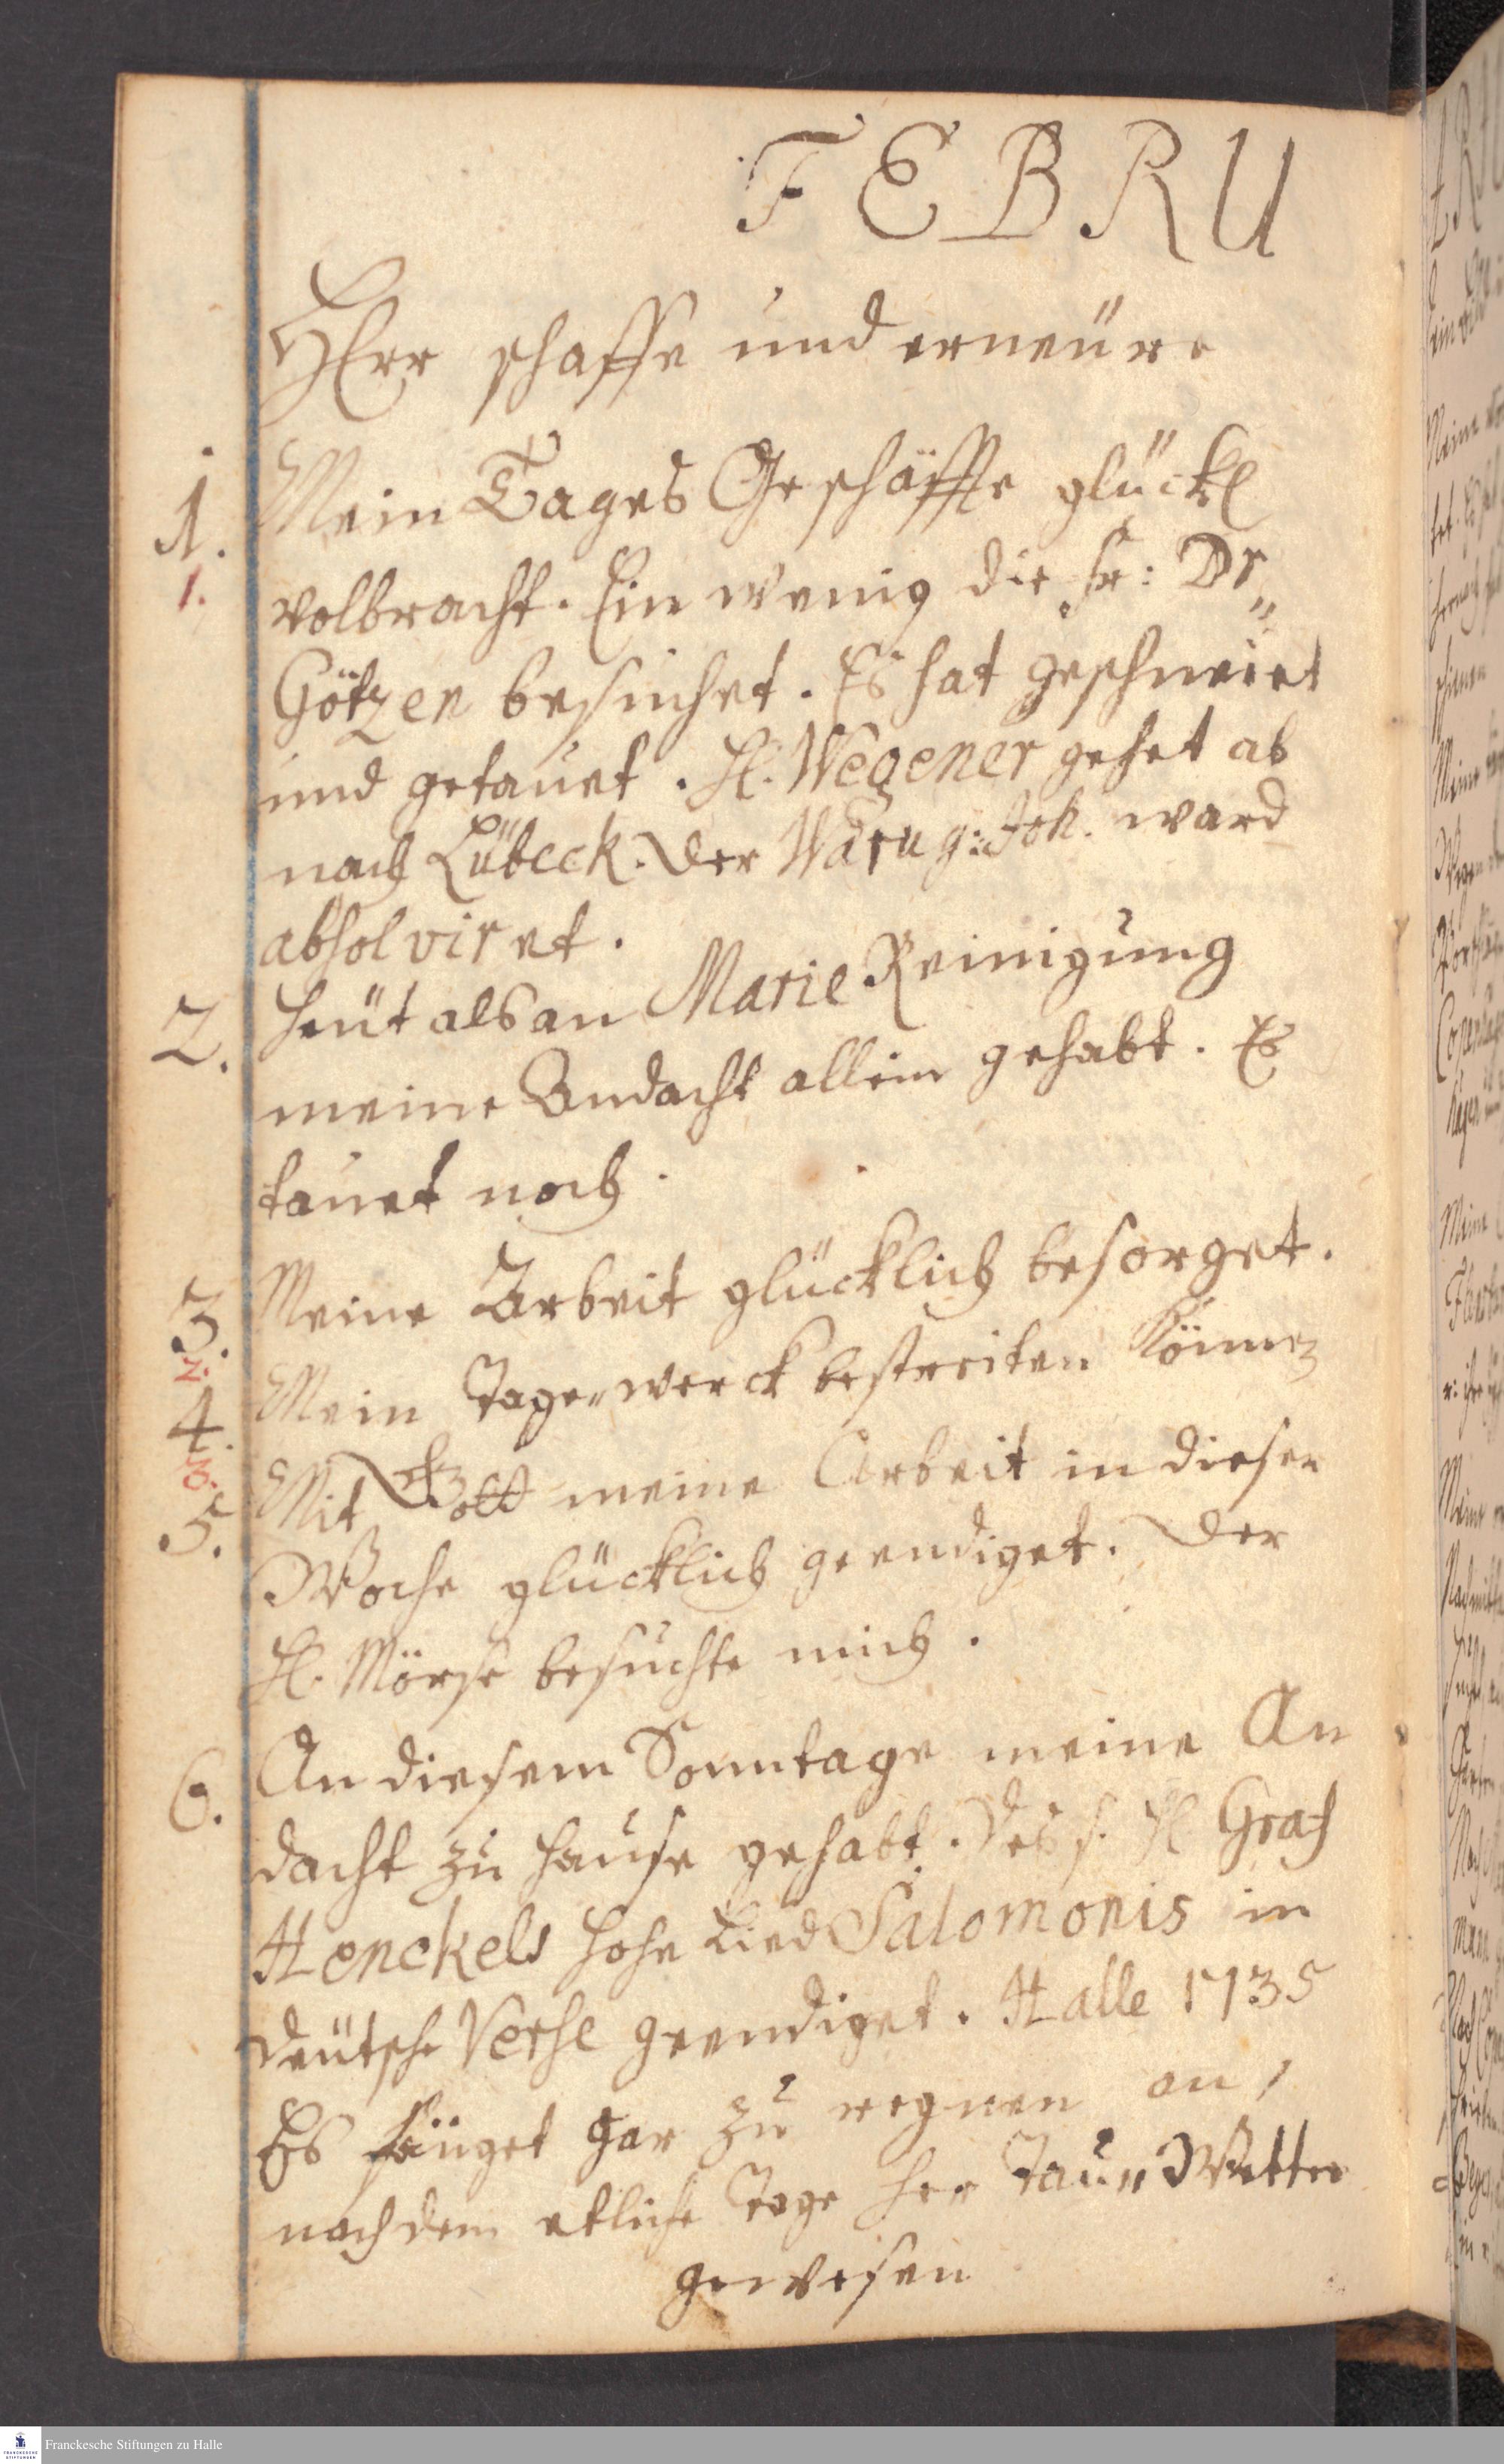 FEBRU
HErr schaffe und erneüre
1. Mein Tages Geschäffte glückl
1. volbracht. Ein wenig die Fr: Dr„
Götzen besuchet. Es hat geschneiet
und getauet. H. Wegener gehet ab
nach Lübeck. Der Warug: Joh. ward
absolviret.
2. Heüt als an Marie Reinigung
meine Andacht allein gehabt. Es
tauet noch.
3. Meine Arbeit glücklich besorget.
2.
4. Mein Tage„werck bestreiten können
3.
5. Mit Gott meine Arbeit in dieser
Woche glücklich geendiget. Der
H. Mörse besuchte mich.
6. An diesem Sonntage meine An
dacht zu Hause gehabt. Des s. H Graf
Henckels Hohe Lied Salomonis in
deütsche Verse geendiget. Halle 1735
Es fänget gar zu regnen an,
nachdem etliche Tage her Tau„Wetter
gewesen
Franckesche Stiftungen zu Halle